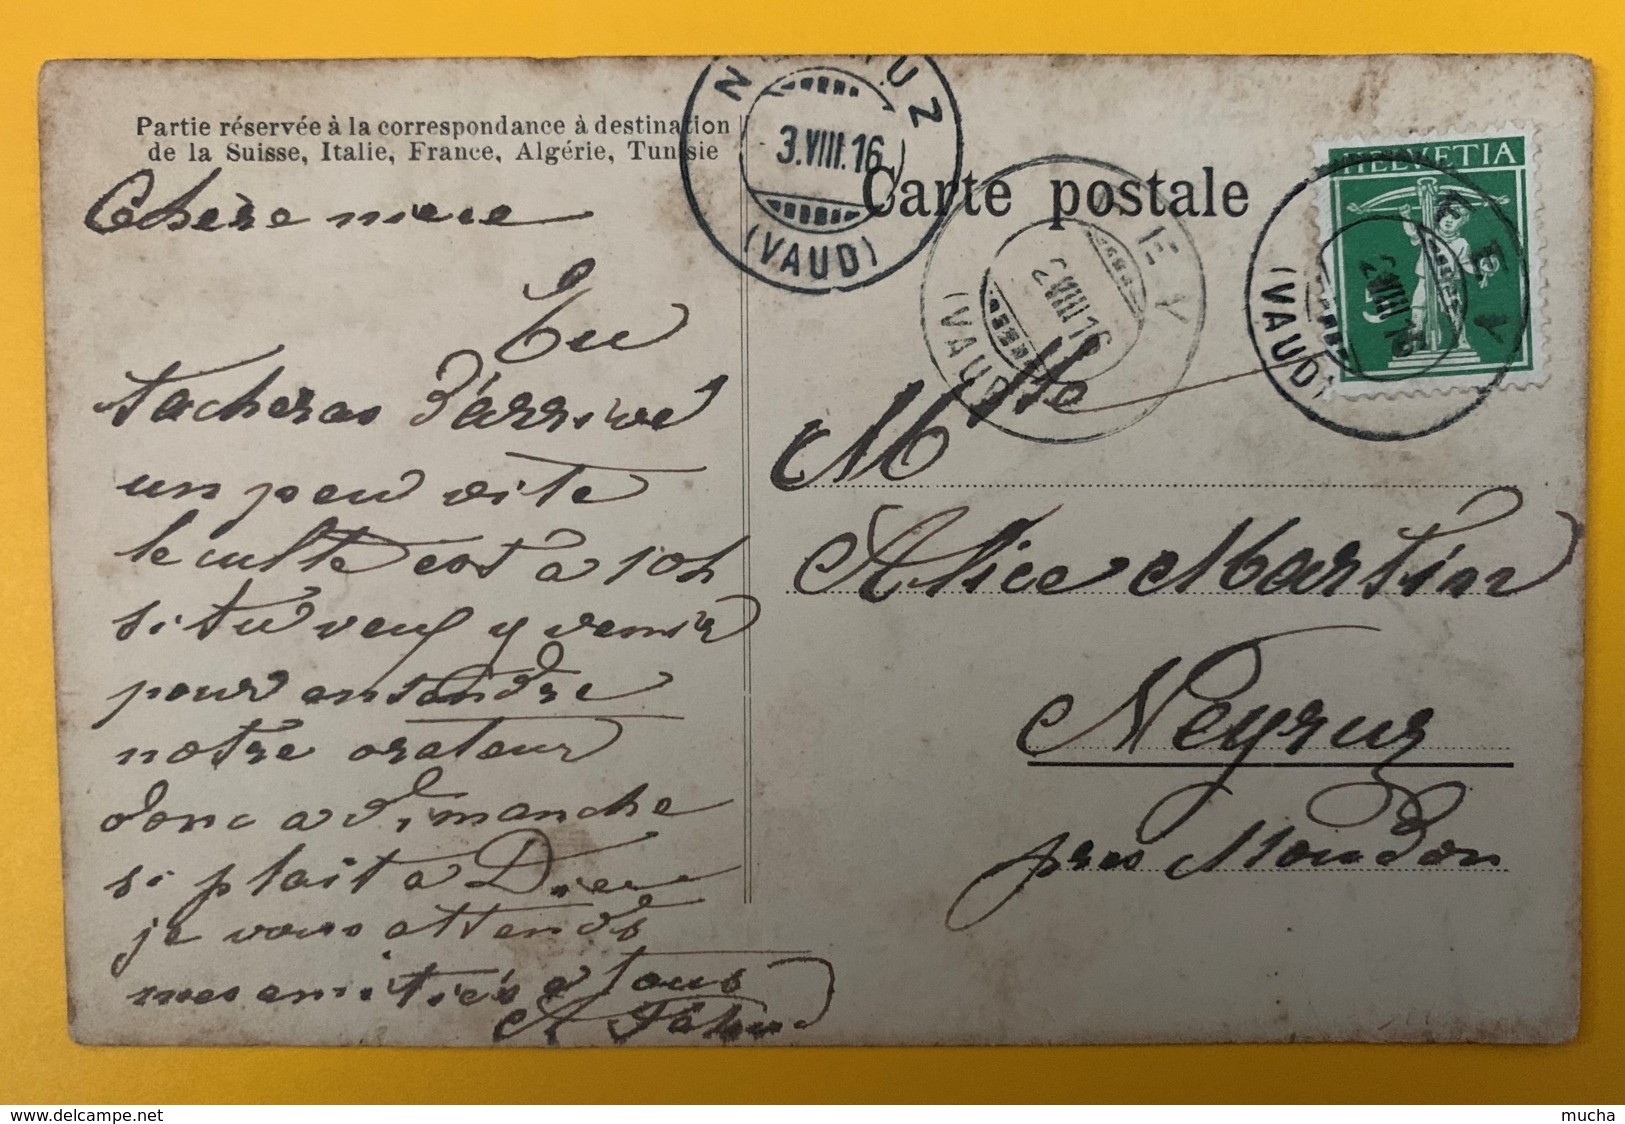 Partie réservée à la correspondance à destination
de la Suisse, Italie, France, Algérie, Tunisie
Carte postale
HELVETIA
5
3.VIII.16
(VAUD)
2 VIII 16
(VAUD)
2 VIII 16
(VAUD)
Chère mère
Tu
tacheras d'arrivé
un peu vite
le culte est à 10h
si tu veux y venir
pour entendre
notre orateur
donc a dimanche
si plait a Dieu
je vous attends
mes amitiés a tous
A
Mlle
Alice Martin
Neyruz
près Moudon
www.delcampe.net
mucha